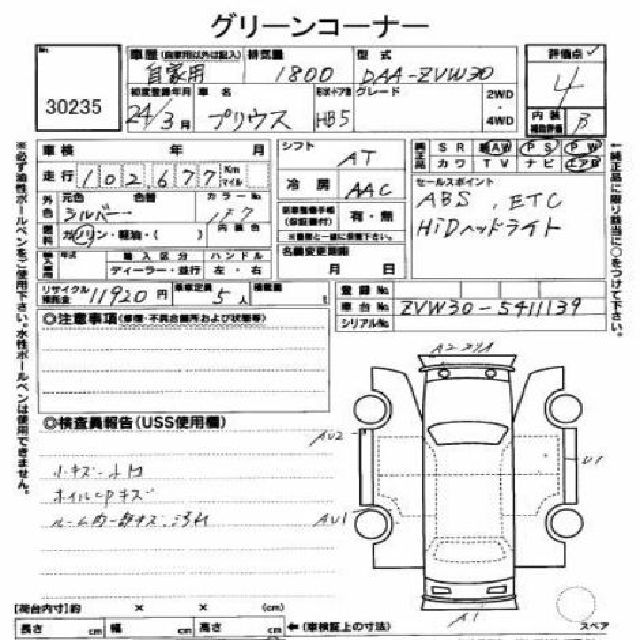 グリーンコーナー
No
30235
車歴 (自家用以外は記入) 排気量 型式
自家用 1800 DAA-ZVW30
初度登録年月 車名 形状・ドア数 グレード 2WD・4WD
24/3月 プリウス HB5
評価点
4
内装補助評価 B
車検 年 月
走行 102,677 Km マイル
シフト AT
冷房 AAC
純正品 SR AW PS PW
カワ TV ナビ エアB
セールスポイント
ABS, ETC
HiDヘッドライト
外色 元色 色替 カラーNo
シルバー 1F7
燃料 ガソリン・軽油・( ) 内装色
有・無
※書類と一緒に保管下さい。
名義変更期限
月 日
年式 輸入区分 ハンドル
ディーラー・並行 左・右
リサイクル預託金 11920円 乗車定員 5人 積載量
登録No
車台No ZVW30-5411139
シリアルNo
◎注意事項(修復・不具合箇所および状態等)
◎検査員報告(USS使用欄)
小キズ・凹
ホイルCPキズ
ルーム内一部キズ・汚れ
AU2
AU1
U1
A1
スペア
[荷台内寸]約 × × (cm)
長さ cm 幅 cm 高さ cm ←(車検証上の寸法)
※必ず油性ボールペンをご使用下さい。水性ボールペンは使用できません。
←純正品に限り該当に○をつけて下さい。